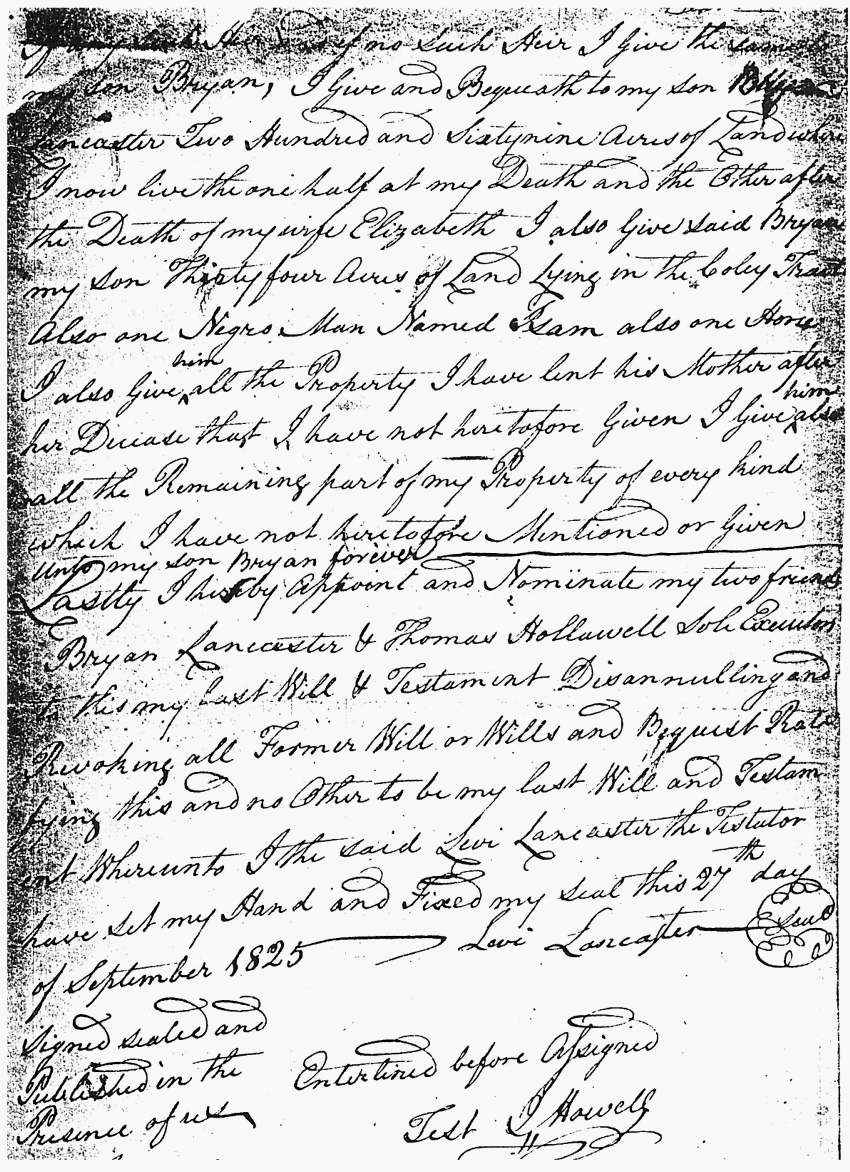 if any such Heir and if no such Heir I Give the same to
my son Bryan, I Give and Bequeath to my son Bryan
Lancaster Two Hundred and Sixtynine Acres of Land where
I now live the one half at my Death and the Other after
the Death of my wife Elizabeth I also Give said Bryan
my son Thirtyfour Acres of Land Lying in the Coley Tract
Also one Negro Man Named Isam also one Horse
I also Give him all the Property I have lent his Mother after
her Decease that I have not heretofore Given I Give him also
all the Remaining part of my Property of every kind
which I have not heretofore Mentioned or Given
unto my son Bryan forever
Lastly I hereby Appoint and Nominate my two friends
Bryan Lancaster & Thomas Hollawell Sole Executors
to this my last Will & Testament Disannulling and
Revoking all Former Will or Wills and Bequest Rati
fying this and no Other to be my last Will and Testam
ent Whereunto I the said Levi Lancaster the Testator
have set my Hand and Fixed my seal this 27th day
of September 1825 Levi Lancaster Seal
Signed sealed and
Published in the
Presence of us
Enterlined before Assigned
Test J Howell